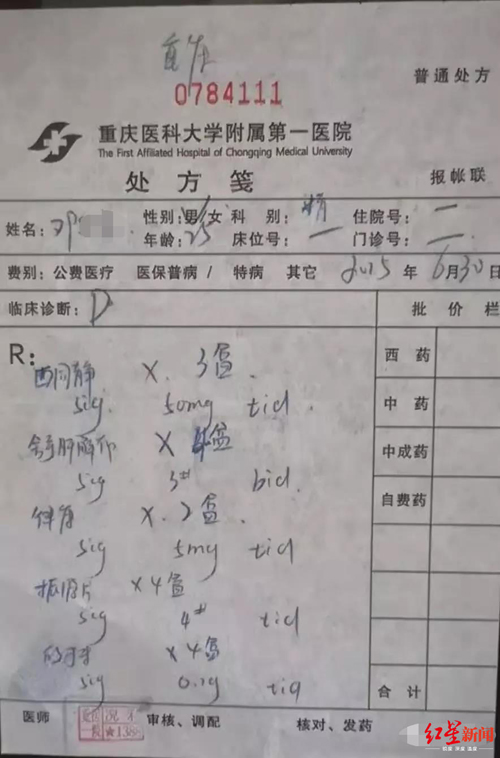 0784111
普通处方
重庆医科大学附属第一医院
The First Affiliated Hospital of Chongqing Medical University
处方笺
报帐联
姓名: 邓
性别: 男/女 科别: 精 住院号: 一
年龄: 25 床位号: 一 门诊号: 一
费别: 公费医疗 医保普病 / 特病 其它 2015 年 6月30日
临床诊断: D
批价栏
R:
西同静 X. 3盒.
sig. 50mg tid.
舒肝解郁 X 4盒
sig 3# bid.
X. 2盒.
sig 5mg tid
振源片 X4盒
sig 4# tid
X4盒
sig 0.2g tid
西药
中药
中成药
自费药
合计
医师
审核、调配
核对、发药
红星新闻